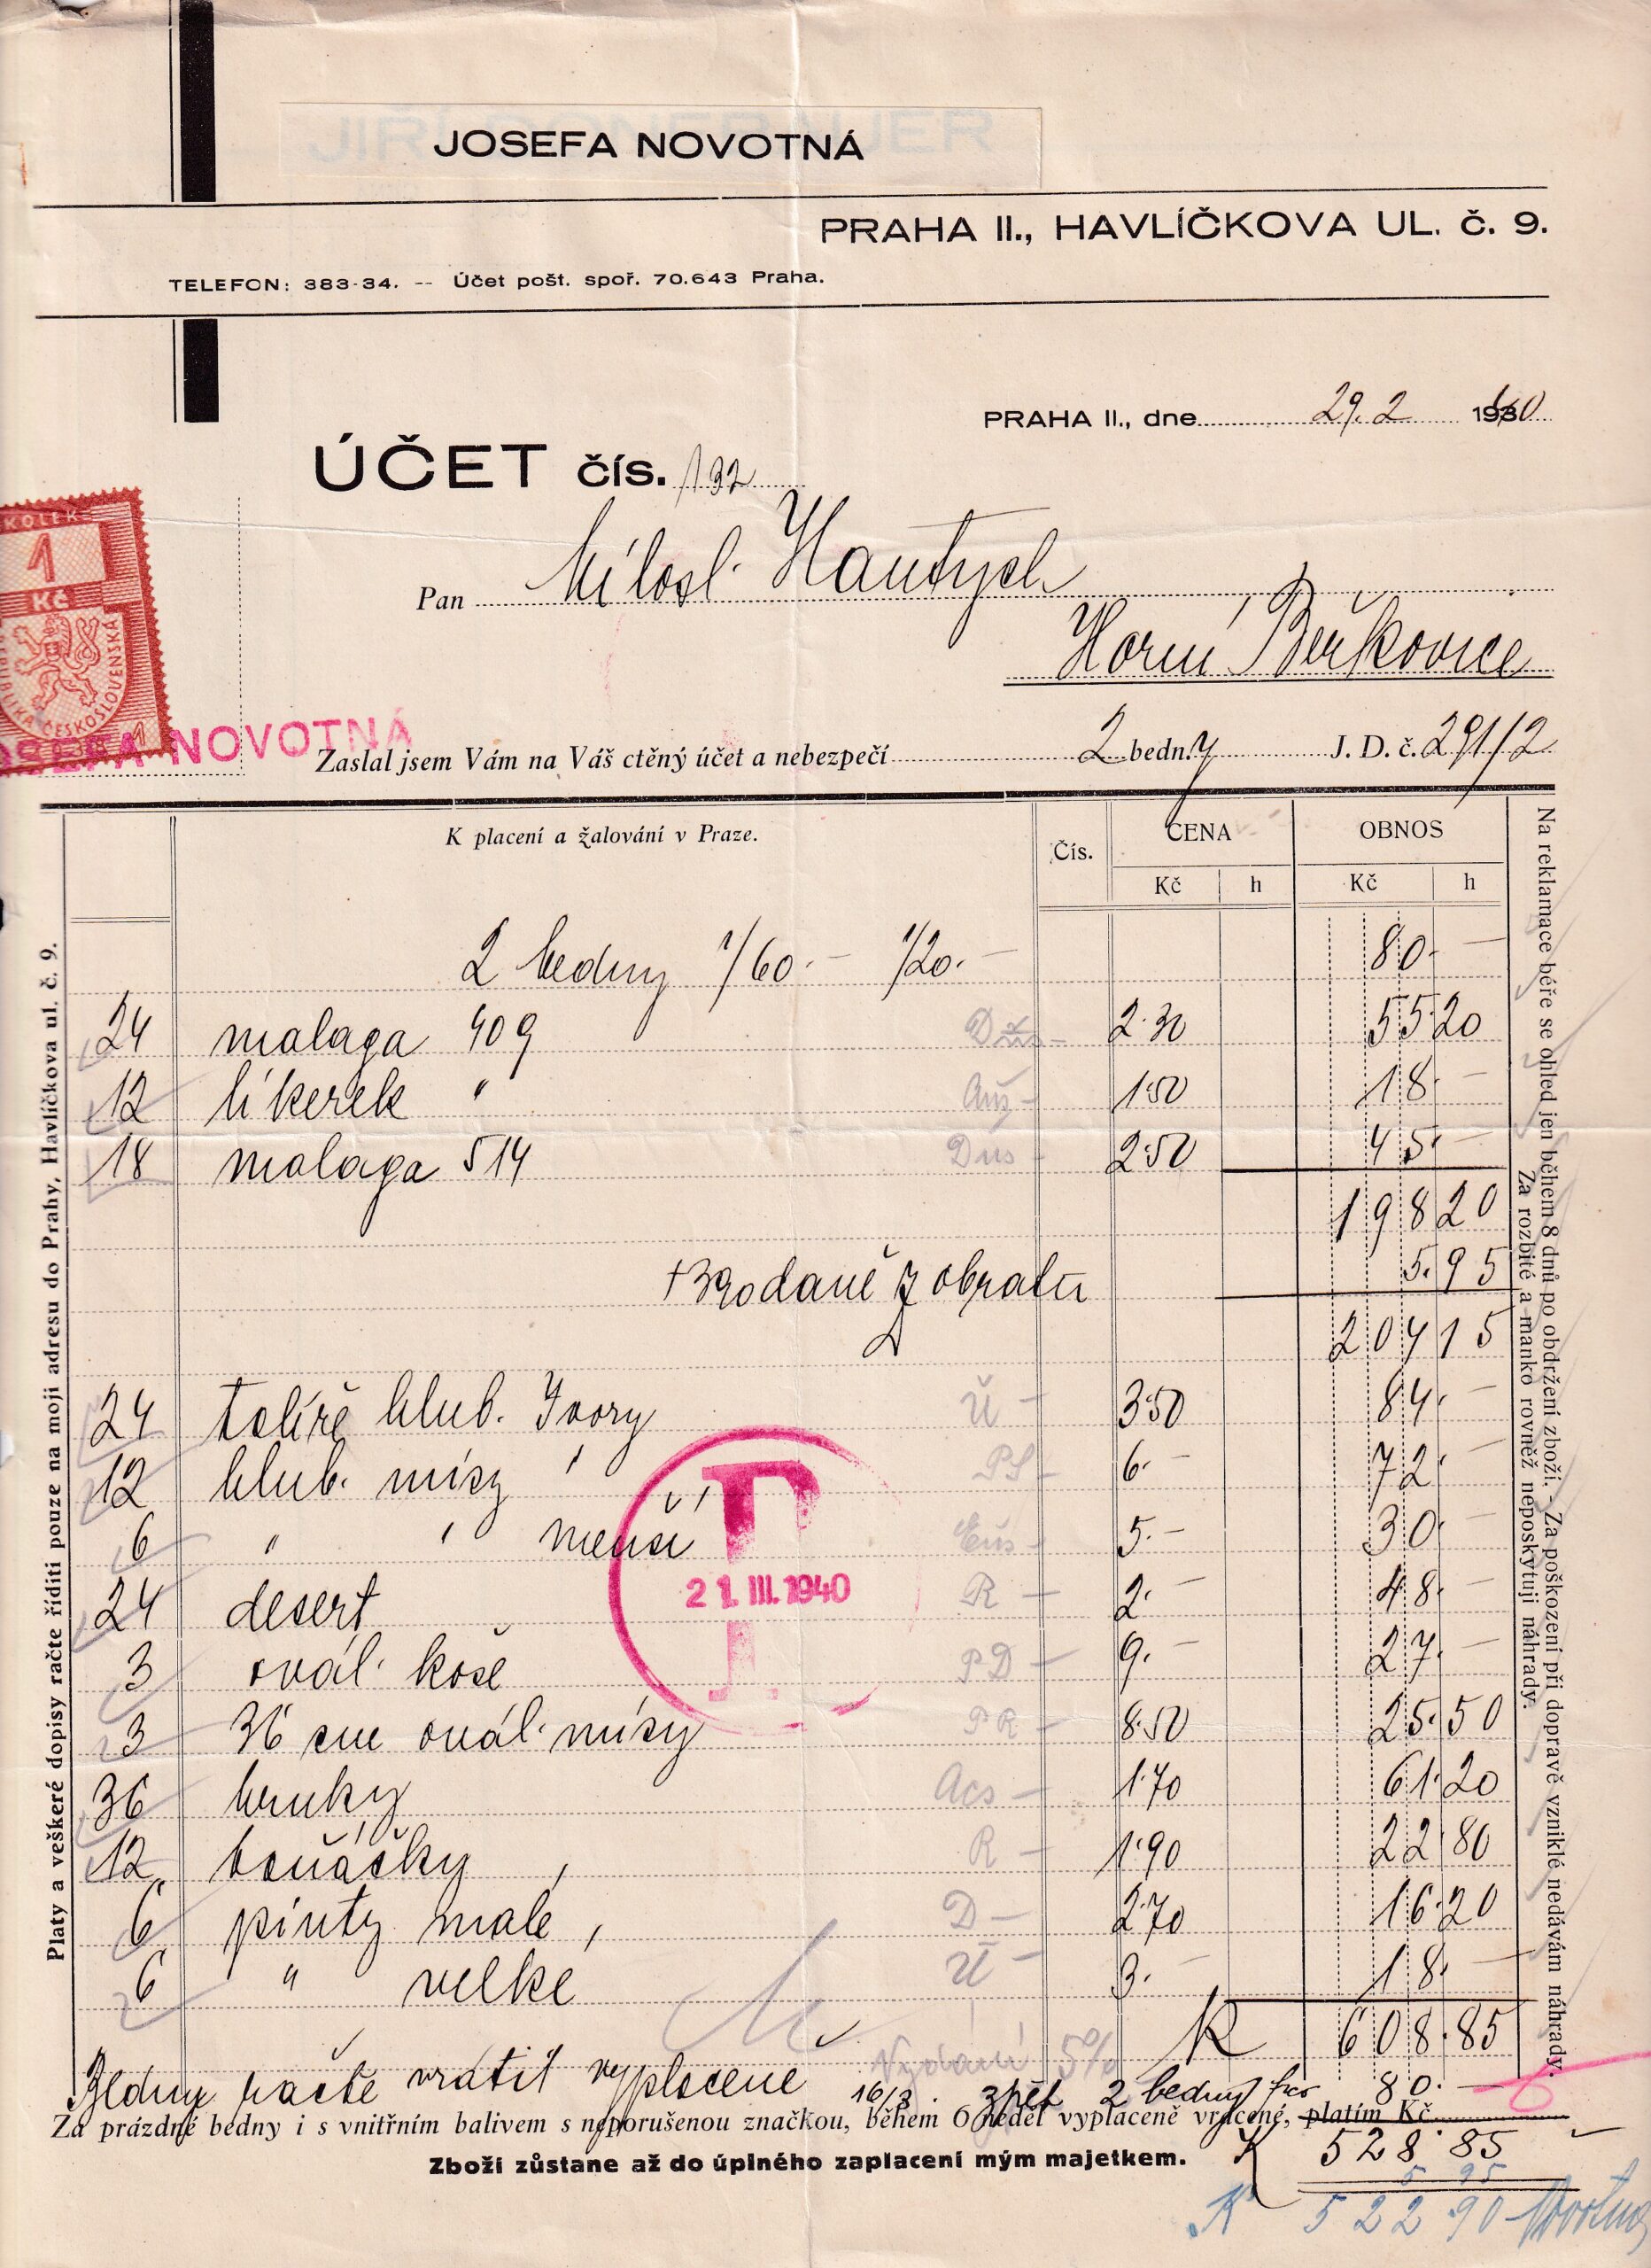 JOSEFA NOVOTNÁ
PRAHA II., HAVLÍČKOVA UL. č. 9.
TELEFON: 383-34. -- Účet pošt. spoř. 70.643 Praha.
PRAHA II., dne 29. 2 1940
ÚČET čís. 132
KOLEK
1
Kč
REPUBLIKA ČESKOSLOVENSKÁ
1
Pan Milosl. Hautych
Horní Beřkovice
JOSEFA NOVOTNÁ
Zaslal jsem Vám na Váš ctěný účet a nebezpečí 2 bedn.y J. D. č. 291/2
K placení a žalování v Praze. Čís. CENA OBNOS
Kč h Kč h
2 bedny 1/60.- 1/20.- 80.-
24 malaga 409 2.30 55 20
12 likerek " 1.50 18.-
18 malaga 514 Dus 2.50 45.-
198 20
+ 3% daně z obratu 5.95
204 15
24 talíře hlub. Ivory Ú - 3.50 84.-
12 hlub. mísy " PS - 6.- 72.-
6 " " menší 5.- 30.-
24 desert R - 2.- 48.-
3 ovál. koše PD - 9.- 27.-
3 36 cm ovál. mísy PR - 8.50 25.50
36 hrnky Acs - 1.70 61.20
12 boňáčky " R - 1.90 22 80
6 pinty malé " D - 2.70 16.20
6 " velké Ú - 3.- 18.-
K 608.85
21. III. 1940
Bedny račte vrátit vyplaceně
Vydání 5%
16/3. zpět 2 bedny fco 80.-
Za prázdné bedny i s vnitřním balivem s neporušenou značkou, během 6 neděl vyplaceně vrácené, platím Kč
Zboží zůstane až do úplného zaplacení mým majetkem.
K 528.85
5 95
K 522.90 Novotná
Platy a veškeré dopisy račte říditi pouze na moji adresu do Prahy, Havlíčkova ul. č. 9.
Na reklamace béře se ohled jen během 8 dnů po obdržení zboží. - Za poškození při dopravě vzniklé nedávám náhrady.
Za rozbité a manko rovněž neposkytuji náhrady.